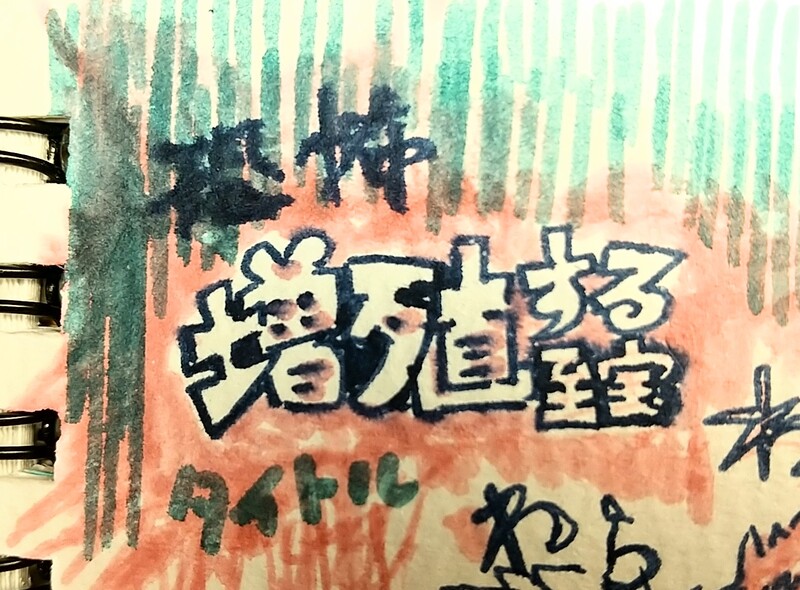 恐怖
増殖する
至宝
タイトル
わら